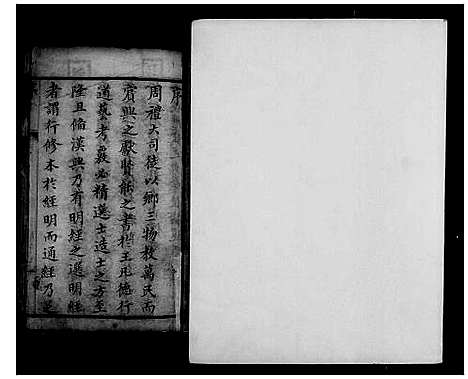 序
周禮大司徒以鄉三物教萬民而
賓興之獻賢能之書於王凡德行
道藝考覈必精選士造士之方至
隆且備漢興乃有明經之選明經
者謂行修本於經明而通經乃